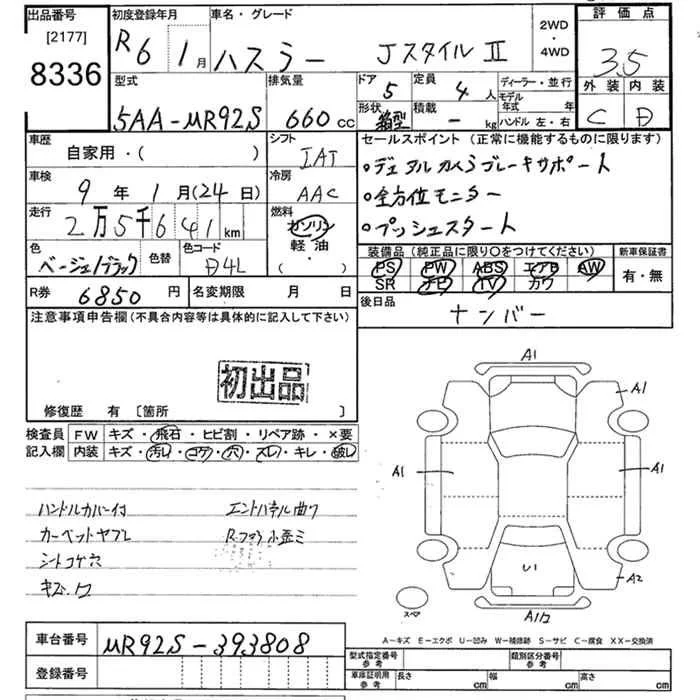 出品番号 初度登録年月 車名・グレード 2WD・4WD 評価点
[2177]
8336
R6年 1月 ハスラー JスタイルⅡ 3.5
型式 排気量 ドア 5 定員 4人 ディーラー・並行 外装 内装
5AA-MR92S 660cc 形状 箱型 積載 -kg モデル年式 年 ハンドル 左・右 C D
車歴 自家用・( ) シフト IAT セールスポイント (正常に機能するものに限ります)
車検 9年1月(24日) 冷房 AAC •デュアルカメラブレーキサポート
•全方位モニター
走行 2万5千641km 燃料 ガソリン 軽油 ・( ) •プッシュスタート
色 ベージュ/ブラック 色替 色コード D4L 装備品 (純正品に限り〇をつけてください) 新車保証書
PS PW ABS エアB AW 有・無
SR ナビ TV カワ
R券 6850円 名変期限 月 日 後日品 ナンバー
注意事項申告欄 (不具合内容等は具体的に記入して下さい)
初出品
修復歴 有 [箇所 ]
検査員記入欄 FW キズ・飛石・ヒビ割・リペア跡・×要
内装 キズ・汚レ・コゲ・穴・スレ・キレ・破レ
ハンドルカバー付 エンドパネル曲ワ
カーペットヤブレ
シートコゲ穴
キズ・ワ
A1
A1
A1
A1
A2
U1
A1ワ
スペア
A-キズ E-エクボ U-凹み W-補修跡 S-サビ C-腐食 XX-交換済
車台番号 MR92S-393808
登録番号
型式指定番号 参考 類別区分番号 参考
車庫証明用 参考 長さ cm 幅 cm 高さ cm